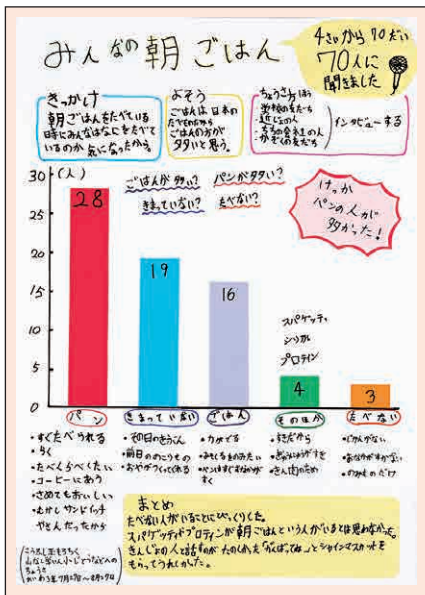 みんなの朝ごはん
4さいから70だい
70人に
聞きました
きっかけ
朝ごはんをたべている
時にみんなはなにをたべて
いるのか 気になったから
よそう
ごはんは日本の
たべものだから
ごはんの方が
タタいと思う。
ちょうさ方ほう
・学校の友だち
・近じょの人
・父ちの会社の人
・かぞくの友だち
インタビューする
(人)
30
25
20
15
10
5
0
ごはんがタタい?
パンがタタい?
きまっていない?
たべない?
けっか
パンの人が
多かった!
28
19
16
スパゲッティ
シリアル
プロテイン
4
3
パン
きまっていない
ごはん
そのほか
たべない
・すぐたべられる
・らく
・たべくらべたい
・コーヒーにあう
・さめてもおいしい
・むかしサンドイッチ
やさんだったから
・その日のきぶん
・前日ののこりもの
・おやがつくってくれる
・力がでる
・みそしるをのみたい
・パンはすぐおなかがすく
・すきだから
・きん肉のため
・じかんがない
・おなかがすかない
・のみものだけ
まとめ
たべない人がいることにびっくりした。
スパゲッティやプロテインが朝ごはんという人がいるとは思わなかった。
きんじょの人と話すのがたのしかった「がんばってね」とシャインマスカットを
もらってうれしかった。